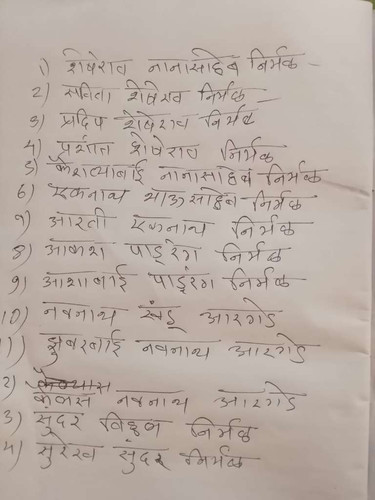 1) शेषेराव नानासाहेब निर्मळ
2) सविता शेषेराव निर्मळ
3) प्रदिप शेषेराव निर्मळ
4) प्रशांत शेषेराव निर्मळ
5) नानासाहेब निर्मळ
6) एकनाथ भाऊसाहेब निर्मळ
7) आरती एकनाथ निर्मळ
8) आकाश पाडूरंग निर्मळ
9) आशाबाई पाडूंरग निर्मळ
10) नवनाथ खंडू आरगडे
11) झुबरबाई नवनाथ आरगडे
2) कैलास नवनाथ आरगडे
3) सुंदर विठ्ठल निर्मळ
4) सुरेख सुंदर निर्मळ